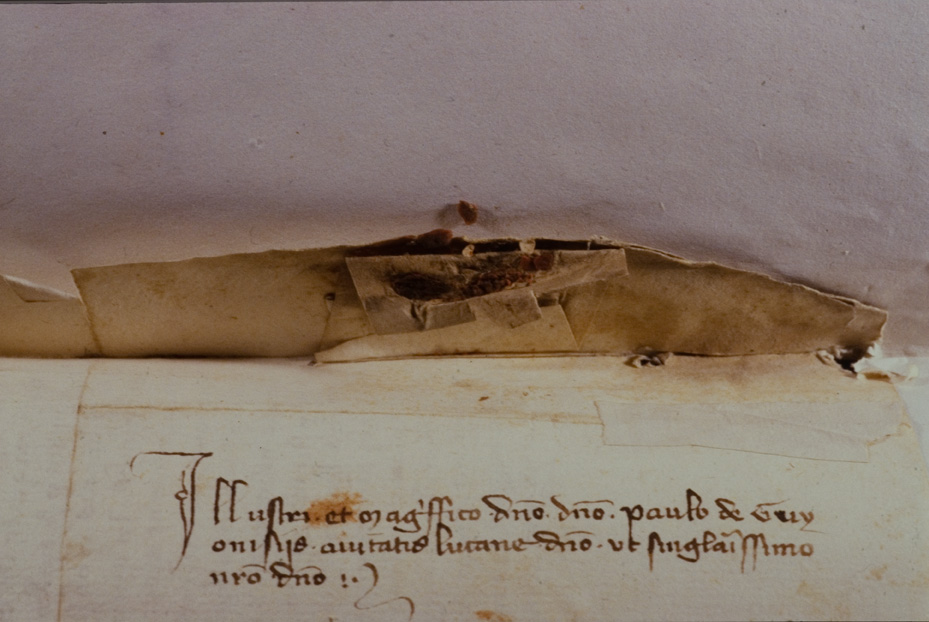 Illustri et mag'ffico dño. dño. paulo de Guy
onisijs. ciuitatis lucane dño. ut singlaīssimo
nrō dño :.)